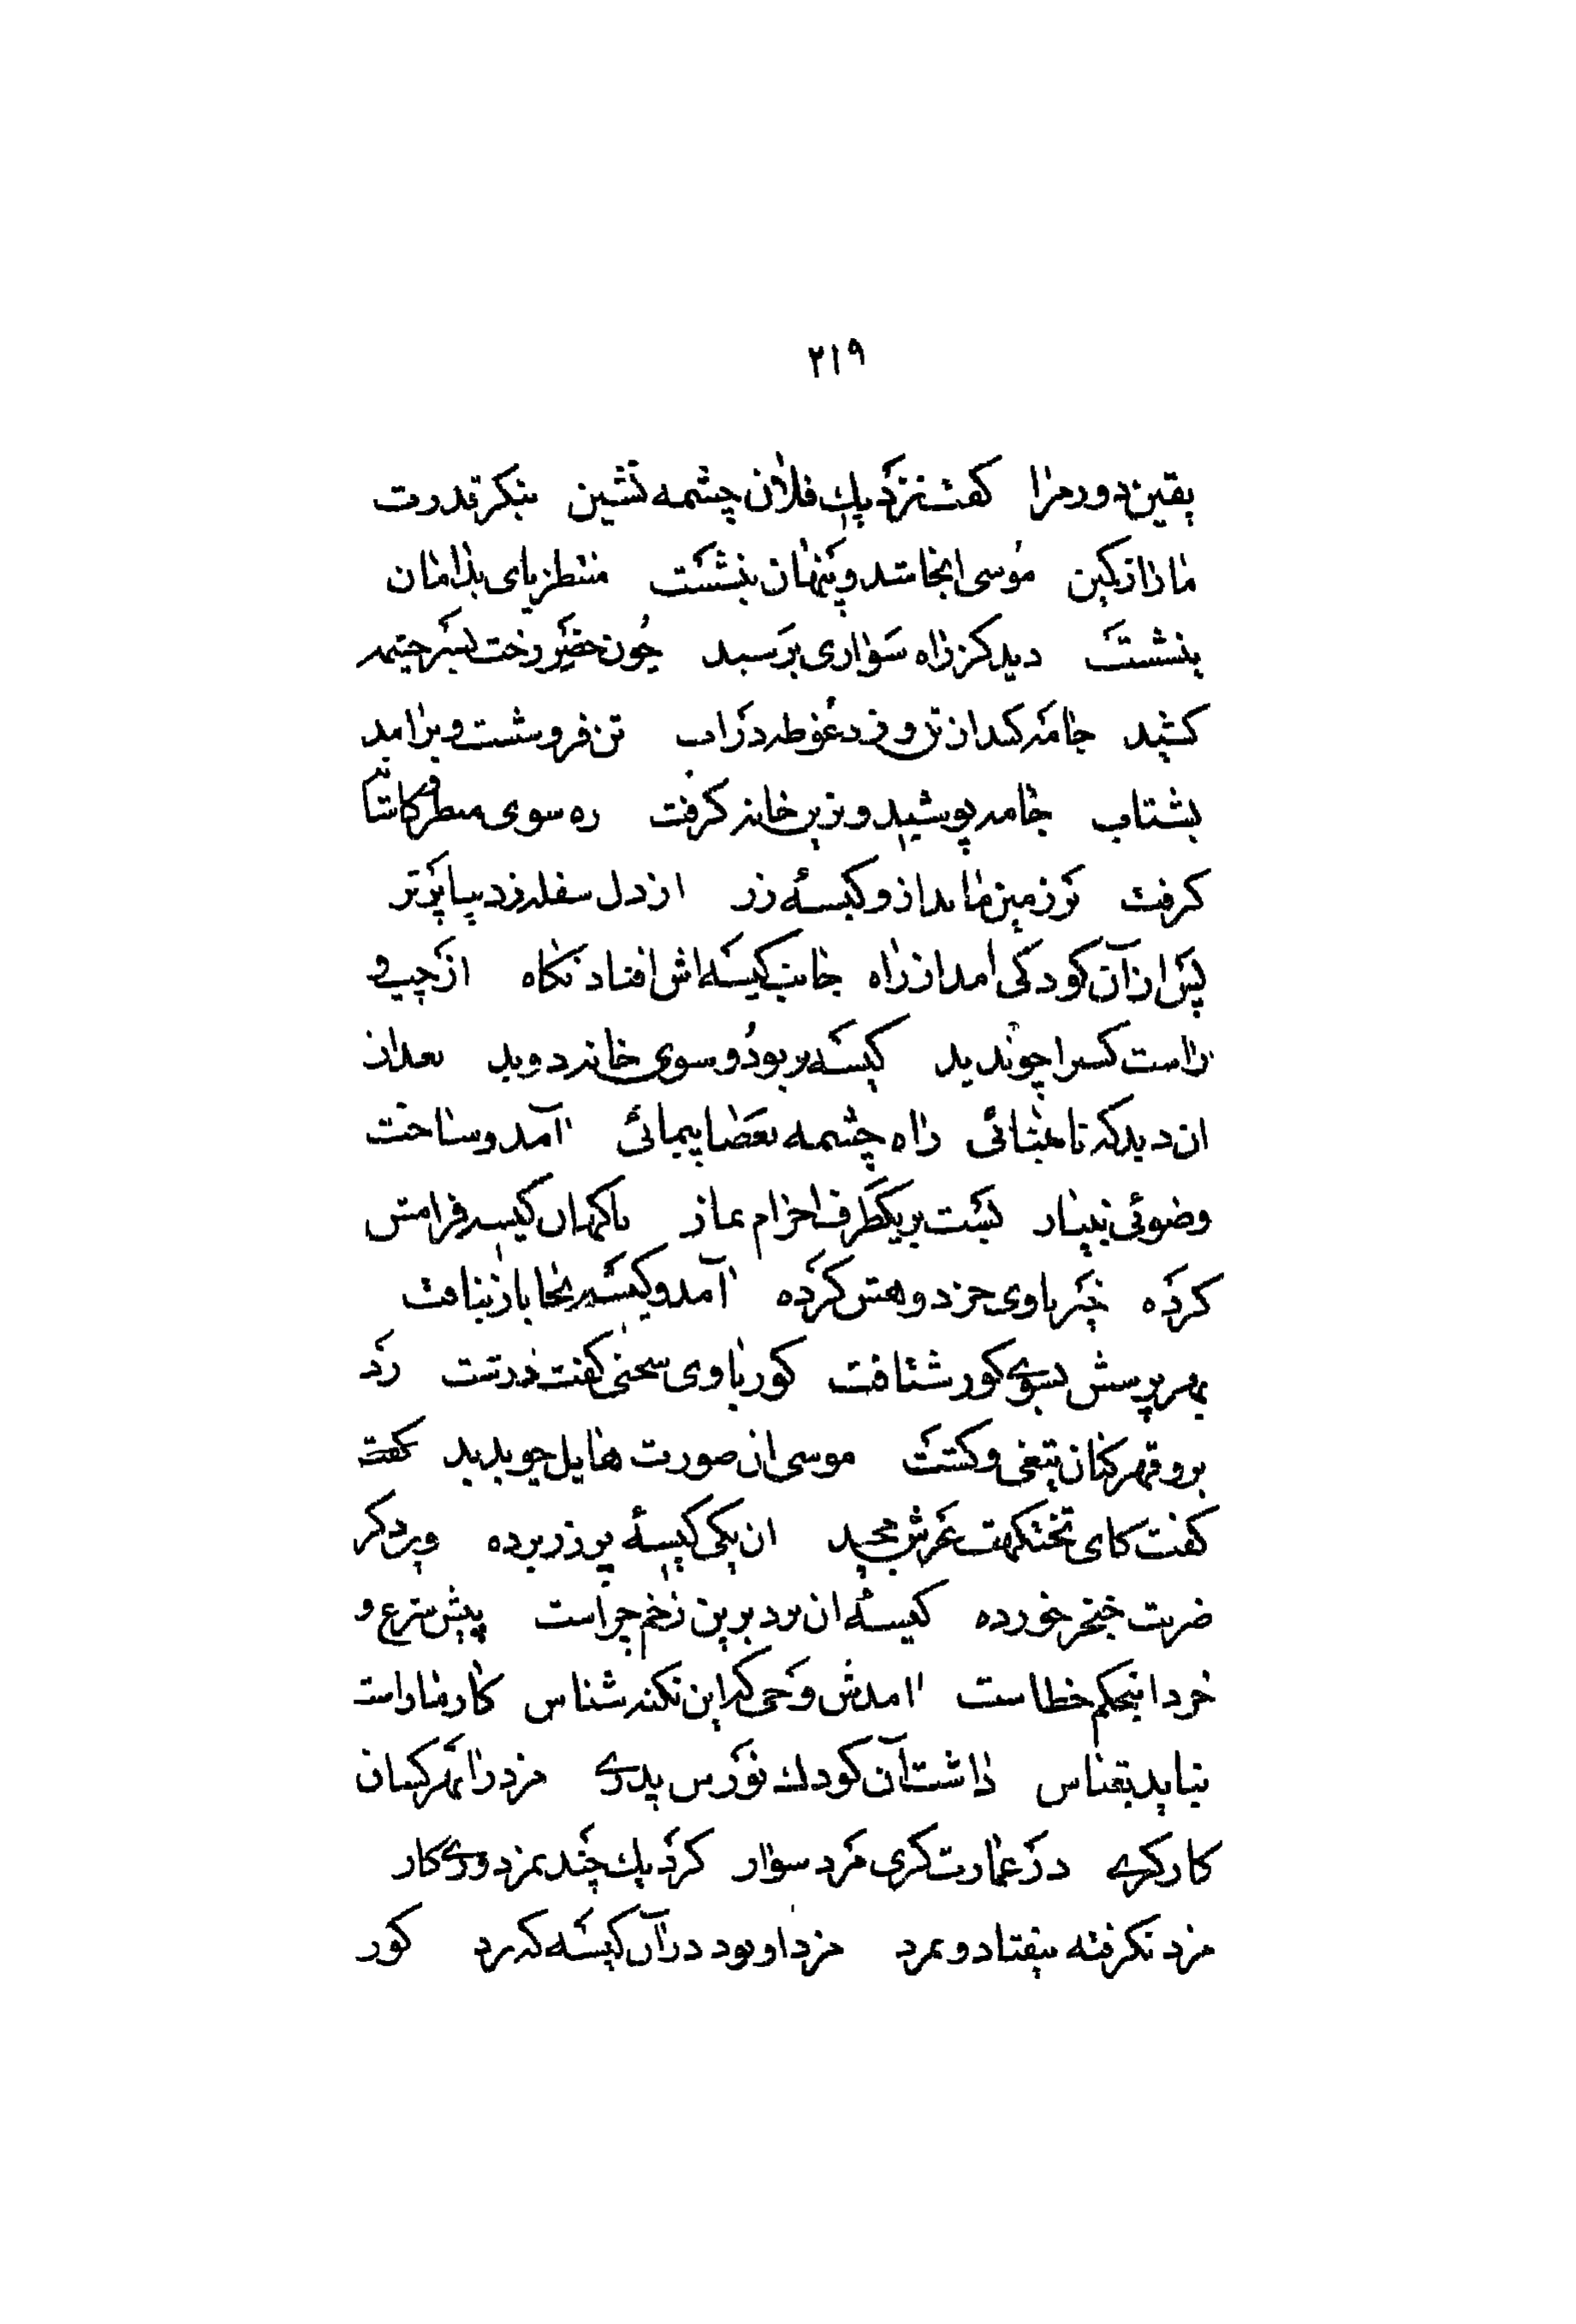 ٢١٩
یقین دور مرا   کفت نزدیك فلان چشمه نشین   بنکر قدرت
ما را ز کمین   موسی انجا شد و پنهان بنشست   منتظر پای بدامان
بنشست   دید کز راه سواری برسید   چون خضر رخت بسر چشمه
کشید   جامه کند از تن و زد غوطه در اب   تن فرو شست و برامد
بشتاب   جامه پوشید و زین خانه کرفت   ره سوی منظر و کاشانه
کرفت   بر زمین ماند ازو کیسهٔ زر   از دل سفله زر د بپا پرتر
پس از آن کودکی امد از راه   جانب کیسه اش افتاد نکاه   از چپ و
راست کسرا چو ندید   کیسه بربود و سوی خانه دوید   بعد از
ان دید که نابینائی   راه چشمه بعصا پیمائی   آمد و ساخت
وضوئی بنیاز   بست بر یکطرف احرام نماز   ناکهان کیسه فرامش
کرده   خیر باوی خرد و هش کرده   آمد و کیسه بجا باز نیافت
بهر پرسش بسوی کور شتافت   کور باوی سخنی کفت درشت   زد
برو قهر کنان تیغی و کشت   موسی ان صورت هایل چو بدید   کفت
کفت کای تختکهت عرش مجید   ان یکی کیسهٔ پر زر برده   وین دکر
ضربت خنجر خورده   کیسه ان برد برین زخم چراست   پیش شرع و
خرد اینحکم خطاست   امدش وحی که این نکته شناس   کار ما راست
نیاید بقیاس   داشت آن کودك نورس پدری   مزدرا بهر کسان
کارکری   در عمارت کری مرد سوار   کرد یك چند بمزدوری کار
مزد نکرفته بیفتاد و بمرد   مزد او بود در آن کیسه که برد   کور